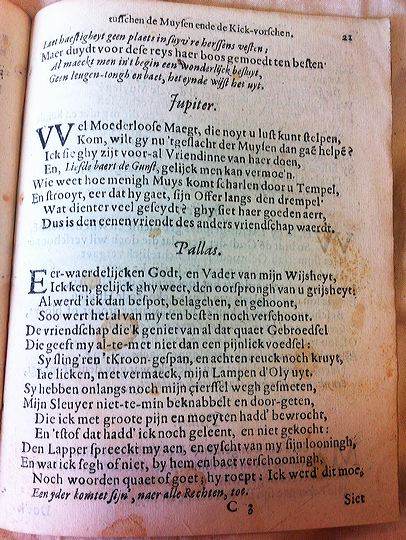 tusschen de Muysen ende de Kick-vorschen. 21
Laet haestigheyt geen plaets in suyv're herssens vesten:
Maer duydt voor dese reys haer boos gemoedt ten besten
Al maeckt men in't begin een wonderlijck besluyt,
Geen leugen-tongh en baet, het eynde wijst het uyt.
Jupiter.
VVel Moederloose Maegt, die noyt u lust kunt stelpen,
Kom, wilt gy nu 'tgeslacht der Muysen dan gaē helpē?
Ick sie ghy zijt voor-al Vriendinne van haer doen,
En, Liefde baert de Gunst, gelijck men kan vermoe'n.
Wie weet hoe menigh Muys komt scharlen door u Tempel,
En strooyt, eer dat hy gaet, sijn Offer langs den drempel
Wat dienter veel geseydt? ghy siet haer goeden aert,
Dus is den eenen vriendt des anders vriendschap waerdt.
Pallas.
Eer-waerdelijcken Godt, en Vader van mijn Wijsheyt,
Ick ken, gelijck ghy weet, den oorsprongh van u grijsheyt;
Al werd' ick dan bespot, belagchen, en gehoont,
Soo wert het al van my ten besten noch verschoont.
De vriendschap die'k geniet van al dat quaet Gebroedsel
Die geeft my al-te-met niet dan een pijnlick voedsel:
Sy sling'ren 'tKroon-gespan, en achten reuck noch kruyt,
Iae licken, met vermaeck, mijn Lampen d'Oly uyt.
Sy hebben onlangs noch mijn çierssel wegh gesmeten,
Mijn Sleuyer niet-te-min beknabbelt en door-geten,
Die ick met groote pijn en moeyten hadd' bewrocht,
En 'tstof dat hadd' ick noch geleent, en niet gekocht:
Den Lapper spreeckt my aen, en eyscht van my sijn looningh,
En wat ick segh of niet, by hem en baet verschooningh,
Noch woorden quaet of goet; hy roept: Ick werd' dit moe,
Een yder komt et sijn', naer alle Rechten, toe.
C 3 Siet